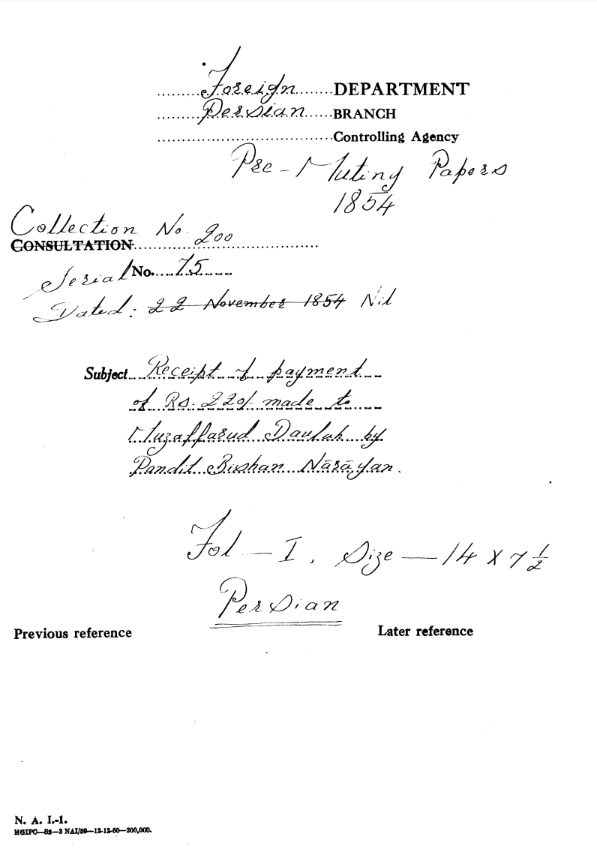 Foreign DEPARTMENT
Persian BRANCH
Controlling Agency
Pre-Mutiny Papers
1854
Collection No. 200
CONSULTATION
Serial No. 75
Dated: 22 November 1854 Nil
Subject Receipt of payment
of Rs. 220/ made to
Muzaffarud Daulah by
Pandit Bishan Nārāyan.
Fol — I. Size — 14 X 7 ½
Persian
Previous reference Later reference
N. A. I.-1.
MGIPC—S2—3 NAI/59—12-12-60—200,000.